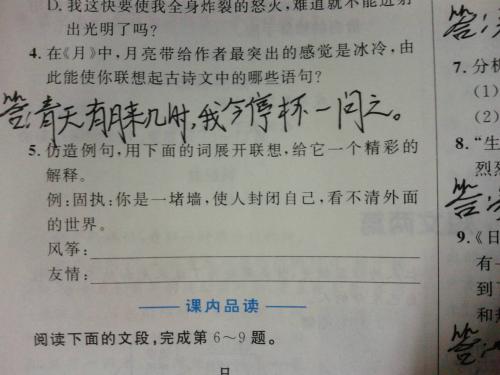 D. 我这快要使我全身炸裂的怒火,难道就不能迸射
出光明了吗?
4. 在《月》中,月亮带给作者最突出的感觉是冰冷,由
此能使你联想起古诗文中的哪些语句?
答:青天有月来几时,我今停杯一问之。
5. 仿造例句,用下面的词展开联想,给它一个精彩的
解释。
例:固执:你是一堵墙,使人封闭自己,看不清外面
的世界。
风筝:
友情:
课内品读
阅读下面的文段,完成第6~9题。
日
答:
7. 分析
(1)
(2)
8. “生
烈烈
答:
9. 《日
有一
到了
和
答: